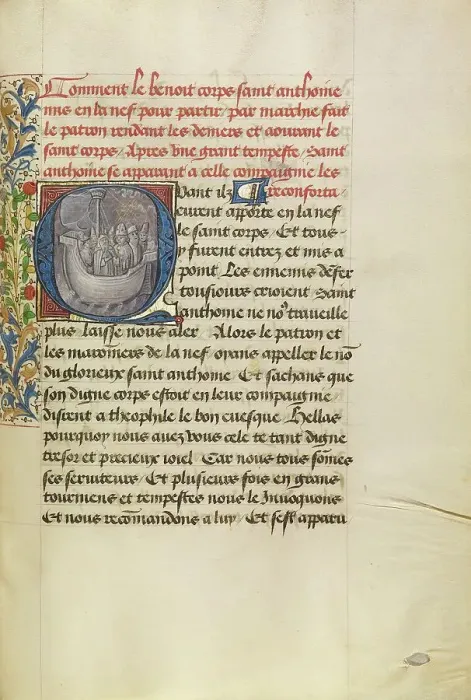 Comment le benoit corps saint anthoine
mis en la nef pour partir par marchie fait
le patron rendant les deniers et aourant le
saint corps. Apres vne grant tempeste. Saint
anthoine se apparant a celle compaignie les
Quant ilz reconforta
eurent apporte en la nef
le saint corps. Et tous
y furent entrez et mis a
point. Les ennemis defer
tousiours crioient Saint
anthoine ne no9 traueille
plus laisse nous aler. Alors le patron et
les maronniers de la nef oyans appeller le no
du glorieux saint anthoine. Et sachans que
son digne corps estoit en leur compaignie
disrent a theophile le bon euesque. Hellas
pourquoy nous auez vous cele te tant digne
tresor et precieux ioiel. Car nous tous somes
ses seruiteurs. Et plusieurs fois en grans
tourmens et tempestes nous le Inuoquons
Et nous recomandons a luy. Et sest apparu